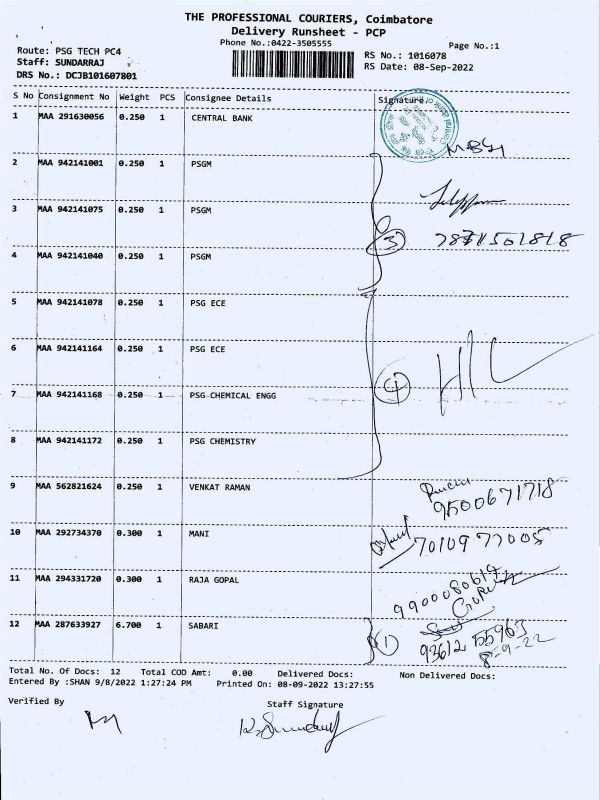 THE PROFESSIONAL COURIERS, Coimbatore
Delivery Runsheet - PCP
Phone No.:0422-3505555
Page No.:1
Route: PSG TECH PC4
Staff: SUNDARRAJ
DRS No.: DCJB101607801
RS No.: 1016078
RS Date: 08-Sep-2022
S No Consignment No Weight PCS Consignee Details Signature
1 MAA 291630056 0.250 1 CENTRAL BANK
2 MAA 942141001 0.250 1 PSGM
3 MAA 942141075 0.250 1 PSGM
3 7871501818
4 MAA 942141040 0.250 1 PSGM
5 MAA 942141078 0.250 1 PSG ECE
6 MAA 942141164 0.250 1 PSG ECE
7 MAA 942141168 0.250 1 PSG CHEMICAL ENGG 4
8 MAA 942141172 0.250 1 PSG CHEMISTRY
9 MAA 562821624 0.250 1 VENKAT RAMAN 9500671718
10 MAA 292734370 0.300 1 MANI 7010977005
11 MAA 294331720 0.300 1 RAJA GOPAL
9900080617
12 MAA 287633927 6.700 1 SABARI
1 93612 55963
8-9-22
Total No. Of Docs: 12 Total COD Amt: 0.00 Delivered Docs: Non Delivered Docs:
Entered By :SHAN 9/8/2022 1:27:24 PM Printed On: 08-09-2022 13:27:55
Verified By Staff Signature